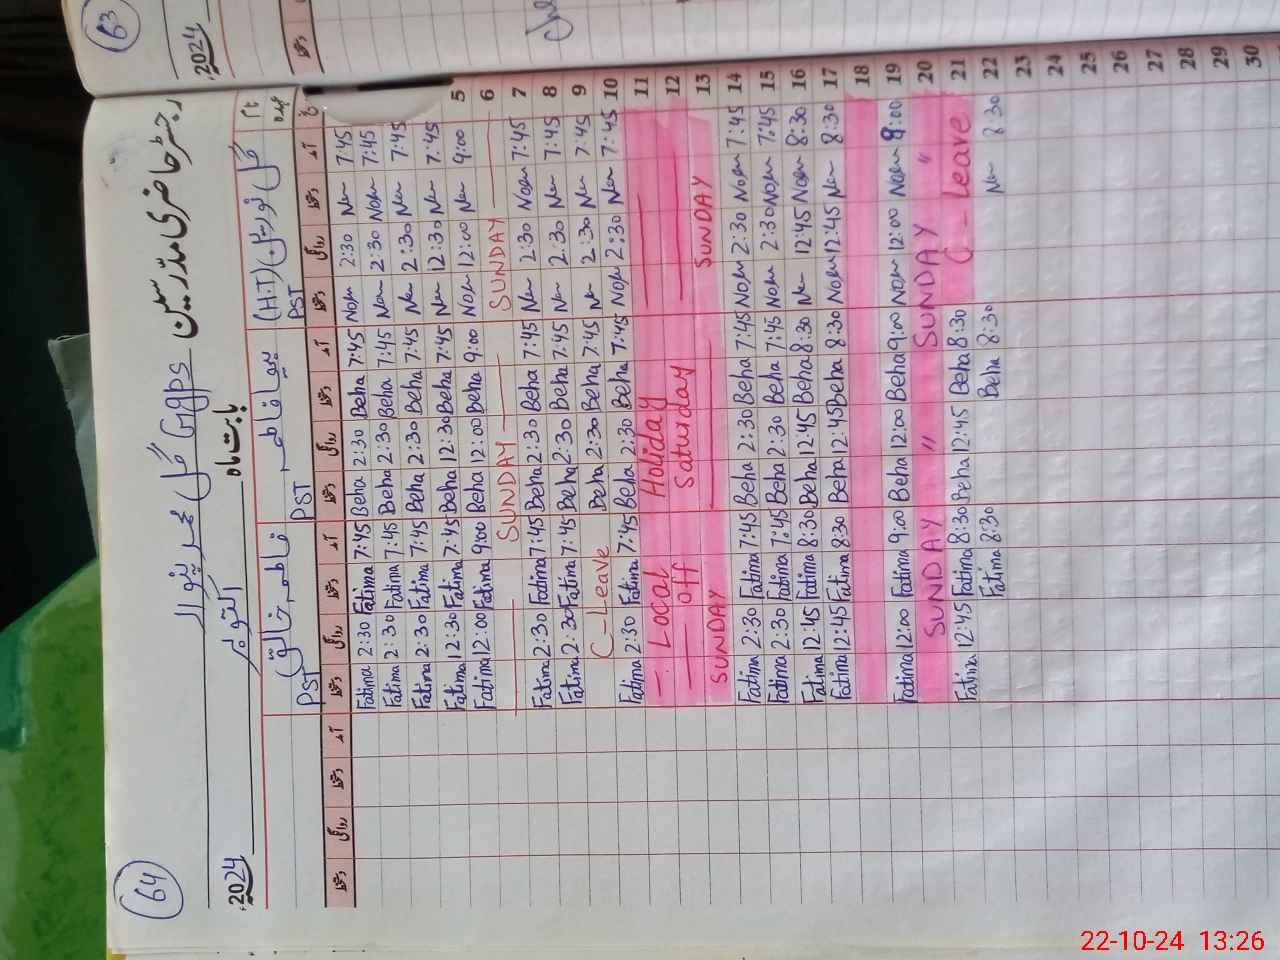 64
رجسٹر حاضری مدرسین GGPS گل محمد بنوار
2024 بابت ماہ اکتوبر 2024
فاطمہ خالق PST
PST
گل نورین (H.T)
دستخط روانگی دستخط آمد دستخط روانگی دستخط آمد دستخط روانگی دستخط آمد دستخط روانگی دستخط آمد
Fatima 2:30 Fatima 7:45 Beha 2:30 Beha 7:45 Noor 2:30 Noor 7:45
Fatima 2:30 Fatima 7:45 Beha 2:30 Beha 7:45 Noor 2:30 Noor 7:45
Fatima 2:30 Fatima 7:45 Beha 2:30 Beha 7:45 Noor 2:30 Noor 7:45
Fatima 12:30 Fatima 7:45 Beha 12:30 Beha 7:45 Noor 12:30 Noor 7:45
Fatima 12:00 Fatima 9:00 Beha 12:00 Beha 9:00 Noor 12:00 Noor 9:00 5
SUNDAY SUNDAY 6
Fatima 2:30 Fatima 7:45 Beha 2:30 Beha 7:45 Noor 2:30 Noor 7:45 7
Fatima 2:30 Fatima 7:45 Beha 2:30 Beha 7:45 Noor 2:30 Noor 7:45 8
C-Leave Beha 2:30 Beha 7:45 Noor 2:30 Noor 7:45 9
Fatima 2:30 Fatima 7:45 Beha 2:30 Beha 7:45 Noor 2:30 Noor 7:45 10
Local Holiday 11
off Saturday 12
SUNDAY SUNDAY 13
Fatima 2:30 Fatima 7:45 Beha 2:30 Beha 7:45 Noor 2:30 Noor 7:45 14
Fatima 2:30 Fatima 7:45 Beha 2:30 Beha 7:45 Noor 2:30 Noor 7:45 15
Fatima 12:45 Fatima 8:30 Beha 12:45 Beha 8:30 Noor 12:45 Noor 8:30 16
Fatima 12:45 Fatima 8:30 Beha 12:45 Beha 8:30 Noor 12:45 Noor 8:30 17
18
Fatima 12:00 Fatima 9:00 Beha 12:00 Beha 9:00 Noor 12:00 Noor 9:00 19
SUNDAY " SUNDAY " 20
Fatima 12:45 Fatima 8:30 Beha 12:45 Beha 8:30 C-Leave 21
Fatima 8:30 Beha 8:30 Noor 8:30 22
23
24
25
26
27
28
29
30
63
2024
22-10-24 13:26